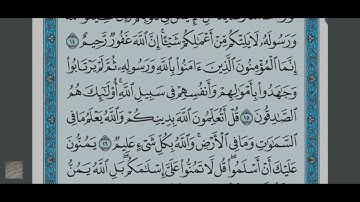 وَرَسُولَهُۥ لَا يَلِتْكُم مِّنْ أَعْمَٰلِكُمْ شَيْـًٔا ۚ إِنَّ ٱللَّهَ غَفُورٌ رَّحِيمٌ ١٤
إِنَّمَا ٱلْمُؤْمِنُونَ ٱلَّذِينَ ءَامَنُوا۟ بِٱللَّهِ وَرَسُولِهِۦ ثُمَّ لَمْ يَرْتَابُوا۟
وَجَٰهَدُوا۟ بِأَمْوَٰلِهِمْ وَأَنفُسِهِمْ فِى سَبِيلِ ٱللَّهِ ۚ أُو۟لَٰٓئِكَ هُمُ
ٱلصَّٰدِقُونَ ١٥ قُلْ أَتُعَلِّمُونَ ٱللَّهَ بِدِينِكُمْ وَٱللَّهُ يَعْلَمُ مَا فِى
ٱلسَّمَٰوَٰتِ وَمَا فِى ٱلْأَرْضِ ۚ وَٱللَّهُ بِكُلِّ شَىْءٍ عَلِيمٌ ١٦ يَمُنُّونَ
عَلَيْكَ أَنْ أَسْلَمُوا۟ ۖ قُل لَّا تَمُنُّوا۟ عَلَىَّ إِسْلَٰمَكُم ۖ بَلِ ٱللَّهُ يَمُنُّ